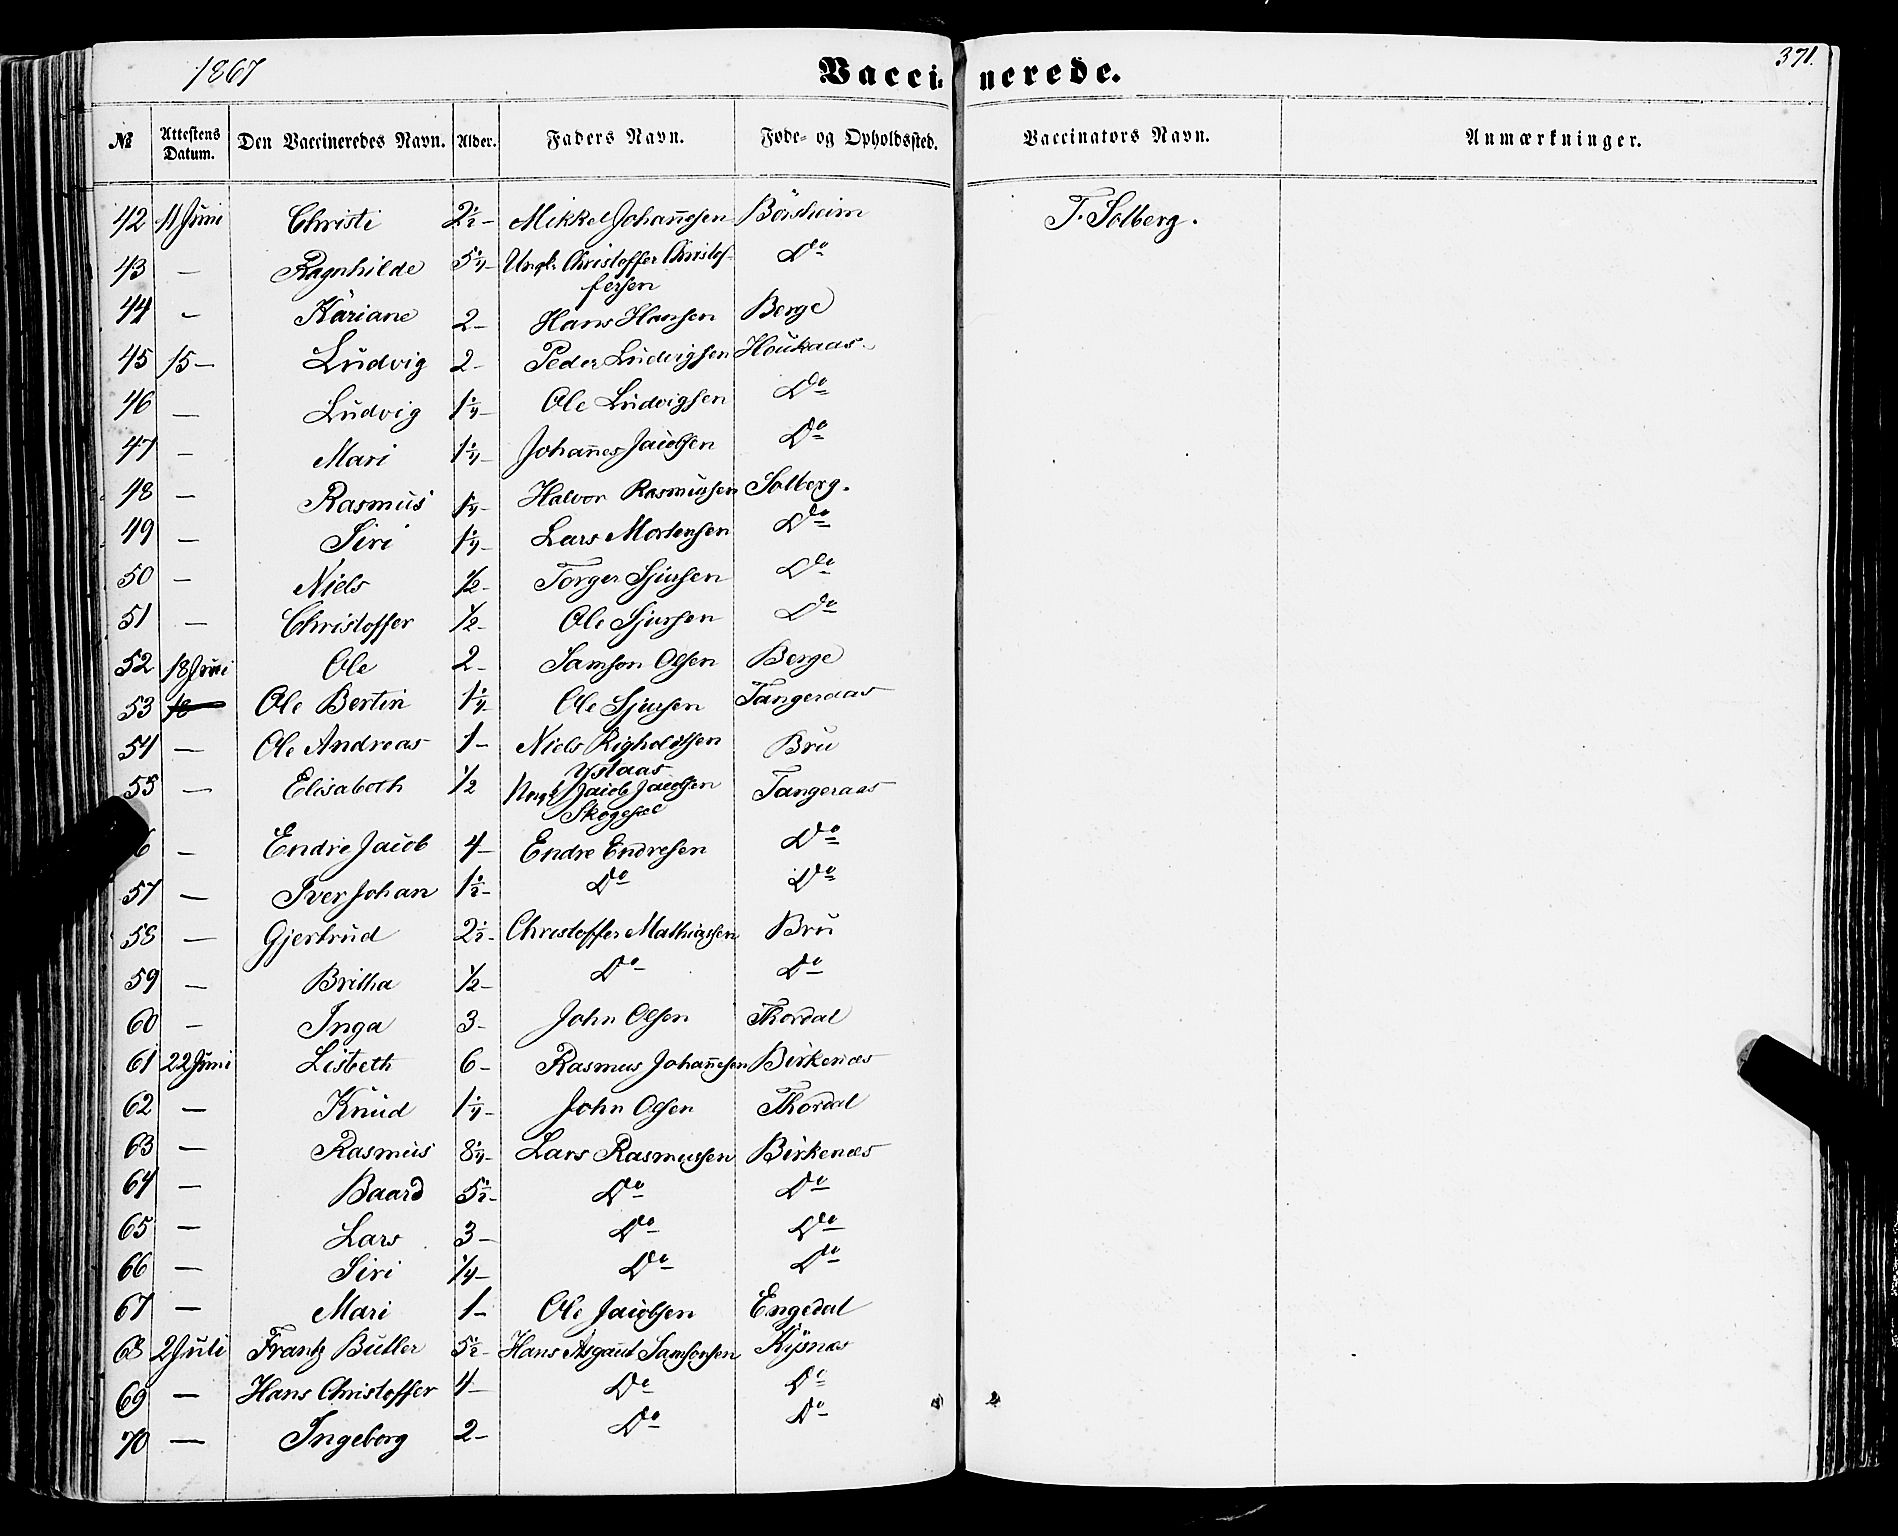 1867 Vaccinerede. 371.
№ Attestens Datum. Den Vaccineredes Navn. Alder. Faders Navn. Føde- og Opholdssted. Vaccinators Navn. Anmærkninger.
42 11 Juni Christi 2½ - Mikkel Johan̄esen Börsheim T. Solberg.
43 — Ragnhilde 5¼ - Ungk. Christoffer Christof-
fersen Do
44 - Kariane 2 - Hans Hansen Berge
45 15 — Ludvig 2 - Peder Ludvigsen Houkaas
46 — Ludvig 1¼ - Ole Ludvigsen Do
47 — Mari 1¼ - Johan̄es Jacobsen Do
48 — Rasmus 1¼ - Halvor Rasmussen Solberg.
49 — Siri 1¼ - Lars Mortensen Do
50 — Niels ½ - Torger Sjursen Do
51 — Christoffer ½ - Ole Sjursen Do
52 18 Juni Ole 2 - Samson Olsen Berge
53 18 Ole Bertin 1¼ - Ole Sjursen Tangeraas
54 — Ole Andreas 1 - Niels Righoldtsen Bru
Ystaas
55 — Elisabeth ½ Jacob Jacobsen Tangeraas
6 — Endre Jacob 4 - Endre Endresen Do
57 — Iver Johan 1½ - Do Do
58 — Gjertrud 2½ - Christoffer Mathiassen Bru
59 — Britha ½ - Do Do
60 — Inga 3 - John Olsen Thordal
61 22 Juni Lisbeth 6 - Rasmus Johan̄esen Birkenæs
62 — Knud 1¼ - John Olsen Thordal
63 — Rasmus 8¼ - Lars Rasmussen Birkenæs
64 — Baard 5½ - Do Do
65 — Lars 3 - Do Do
66 — Siri ¼ - Do Do
67 — Mari 1 - Ole Jacobsen Engedal
68 2 Juli Frantz Butler 5½ - Hans Asgaut Samsonsen Kysnæs
69 — Hans Christoffer 4 - Do Do
70 — Ingeborg 2 - Do Do